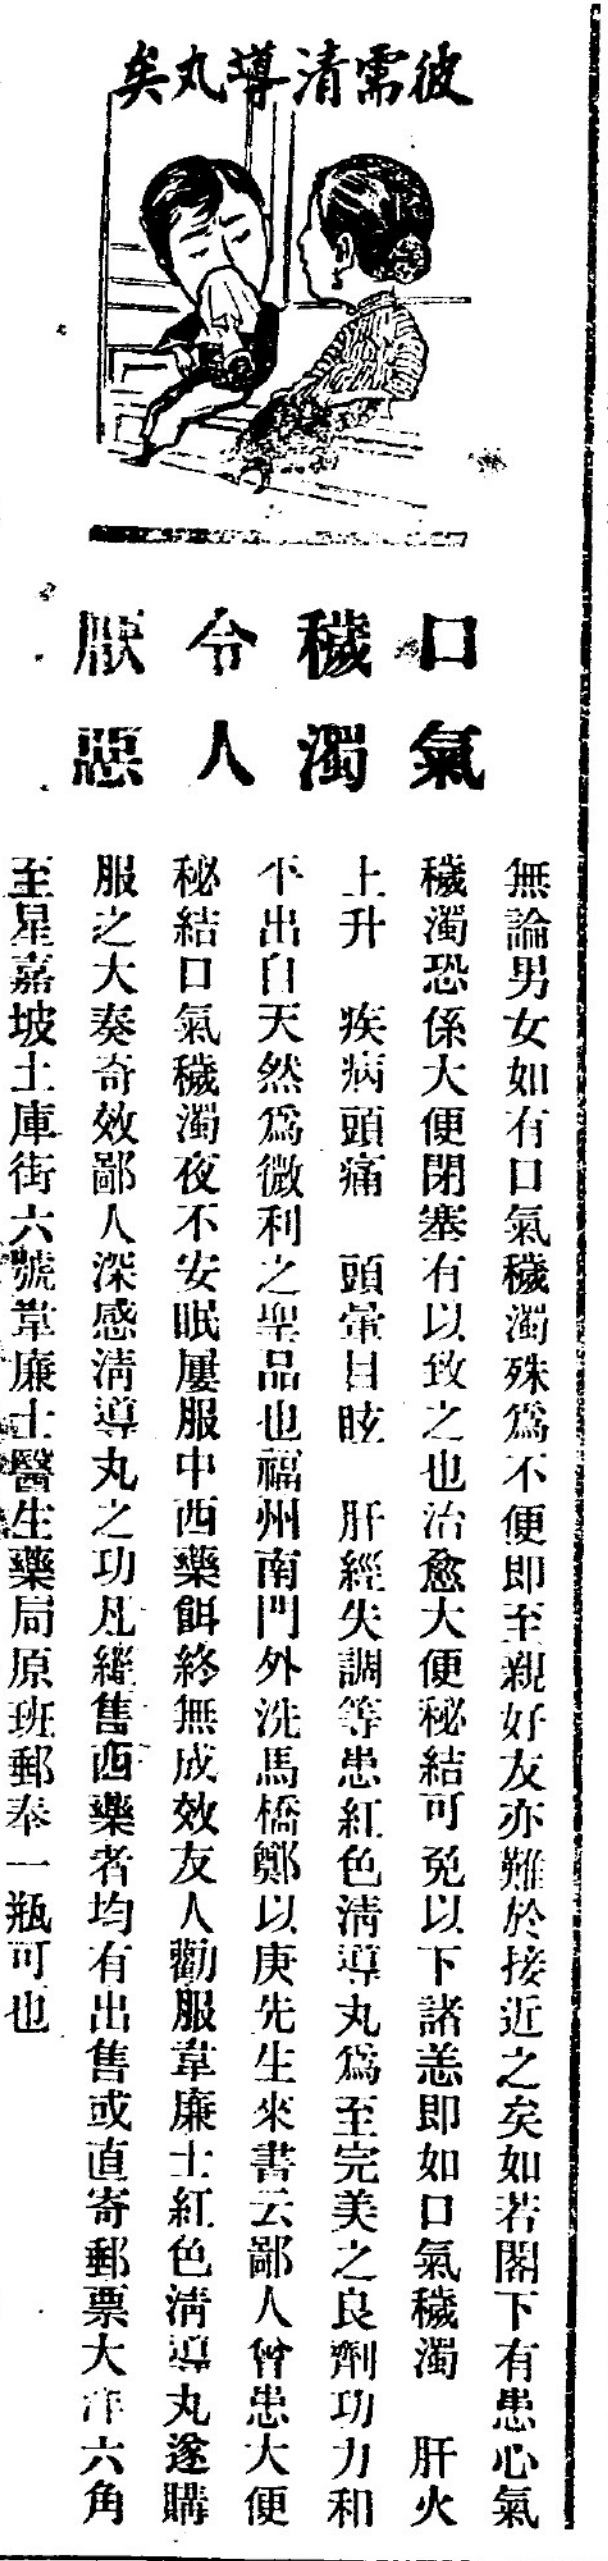 彼需清導丸矣
口氣
穢濁
令人
厭惡
無論男女如有口氣穢濁殊爲不便即至親好友亦難於接近之矣如若閣下有患心氣
穢濁恐係大便閉塞有以致之也治愈大便秘結可免以下諸恙即如口氣穢濁　肝火
上升　疾病頭痛　頭暈目眩　肝經失調等患紅色清導丸爲至完美之良劑功力和
平出自天然爲微利之聖品也福州南門外洗馬橋鄭以庚先生來書云鄙人曾患大便
秘結口氣穢濁夜不安眠屢服中西藥餌終無成效友人勸服韋廉士紅色清導丸遂購
服之大奏奇效鄙人深感清導丸之功凡經售西藥者均有出售或直寄郵票大洋六角
至星嘉坡土庫街六號韋廉士醫生藥局原班郵奉一瓶可也